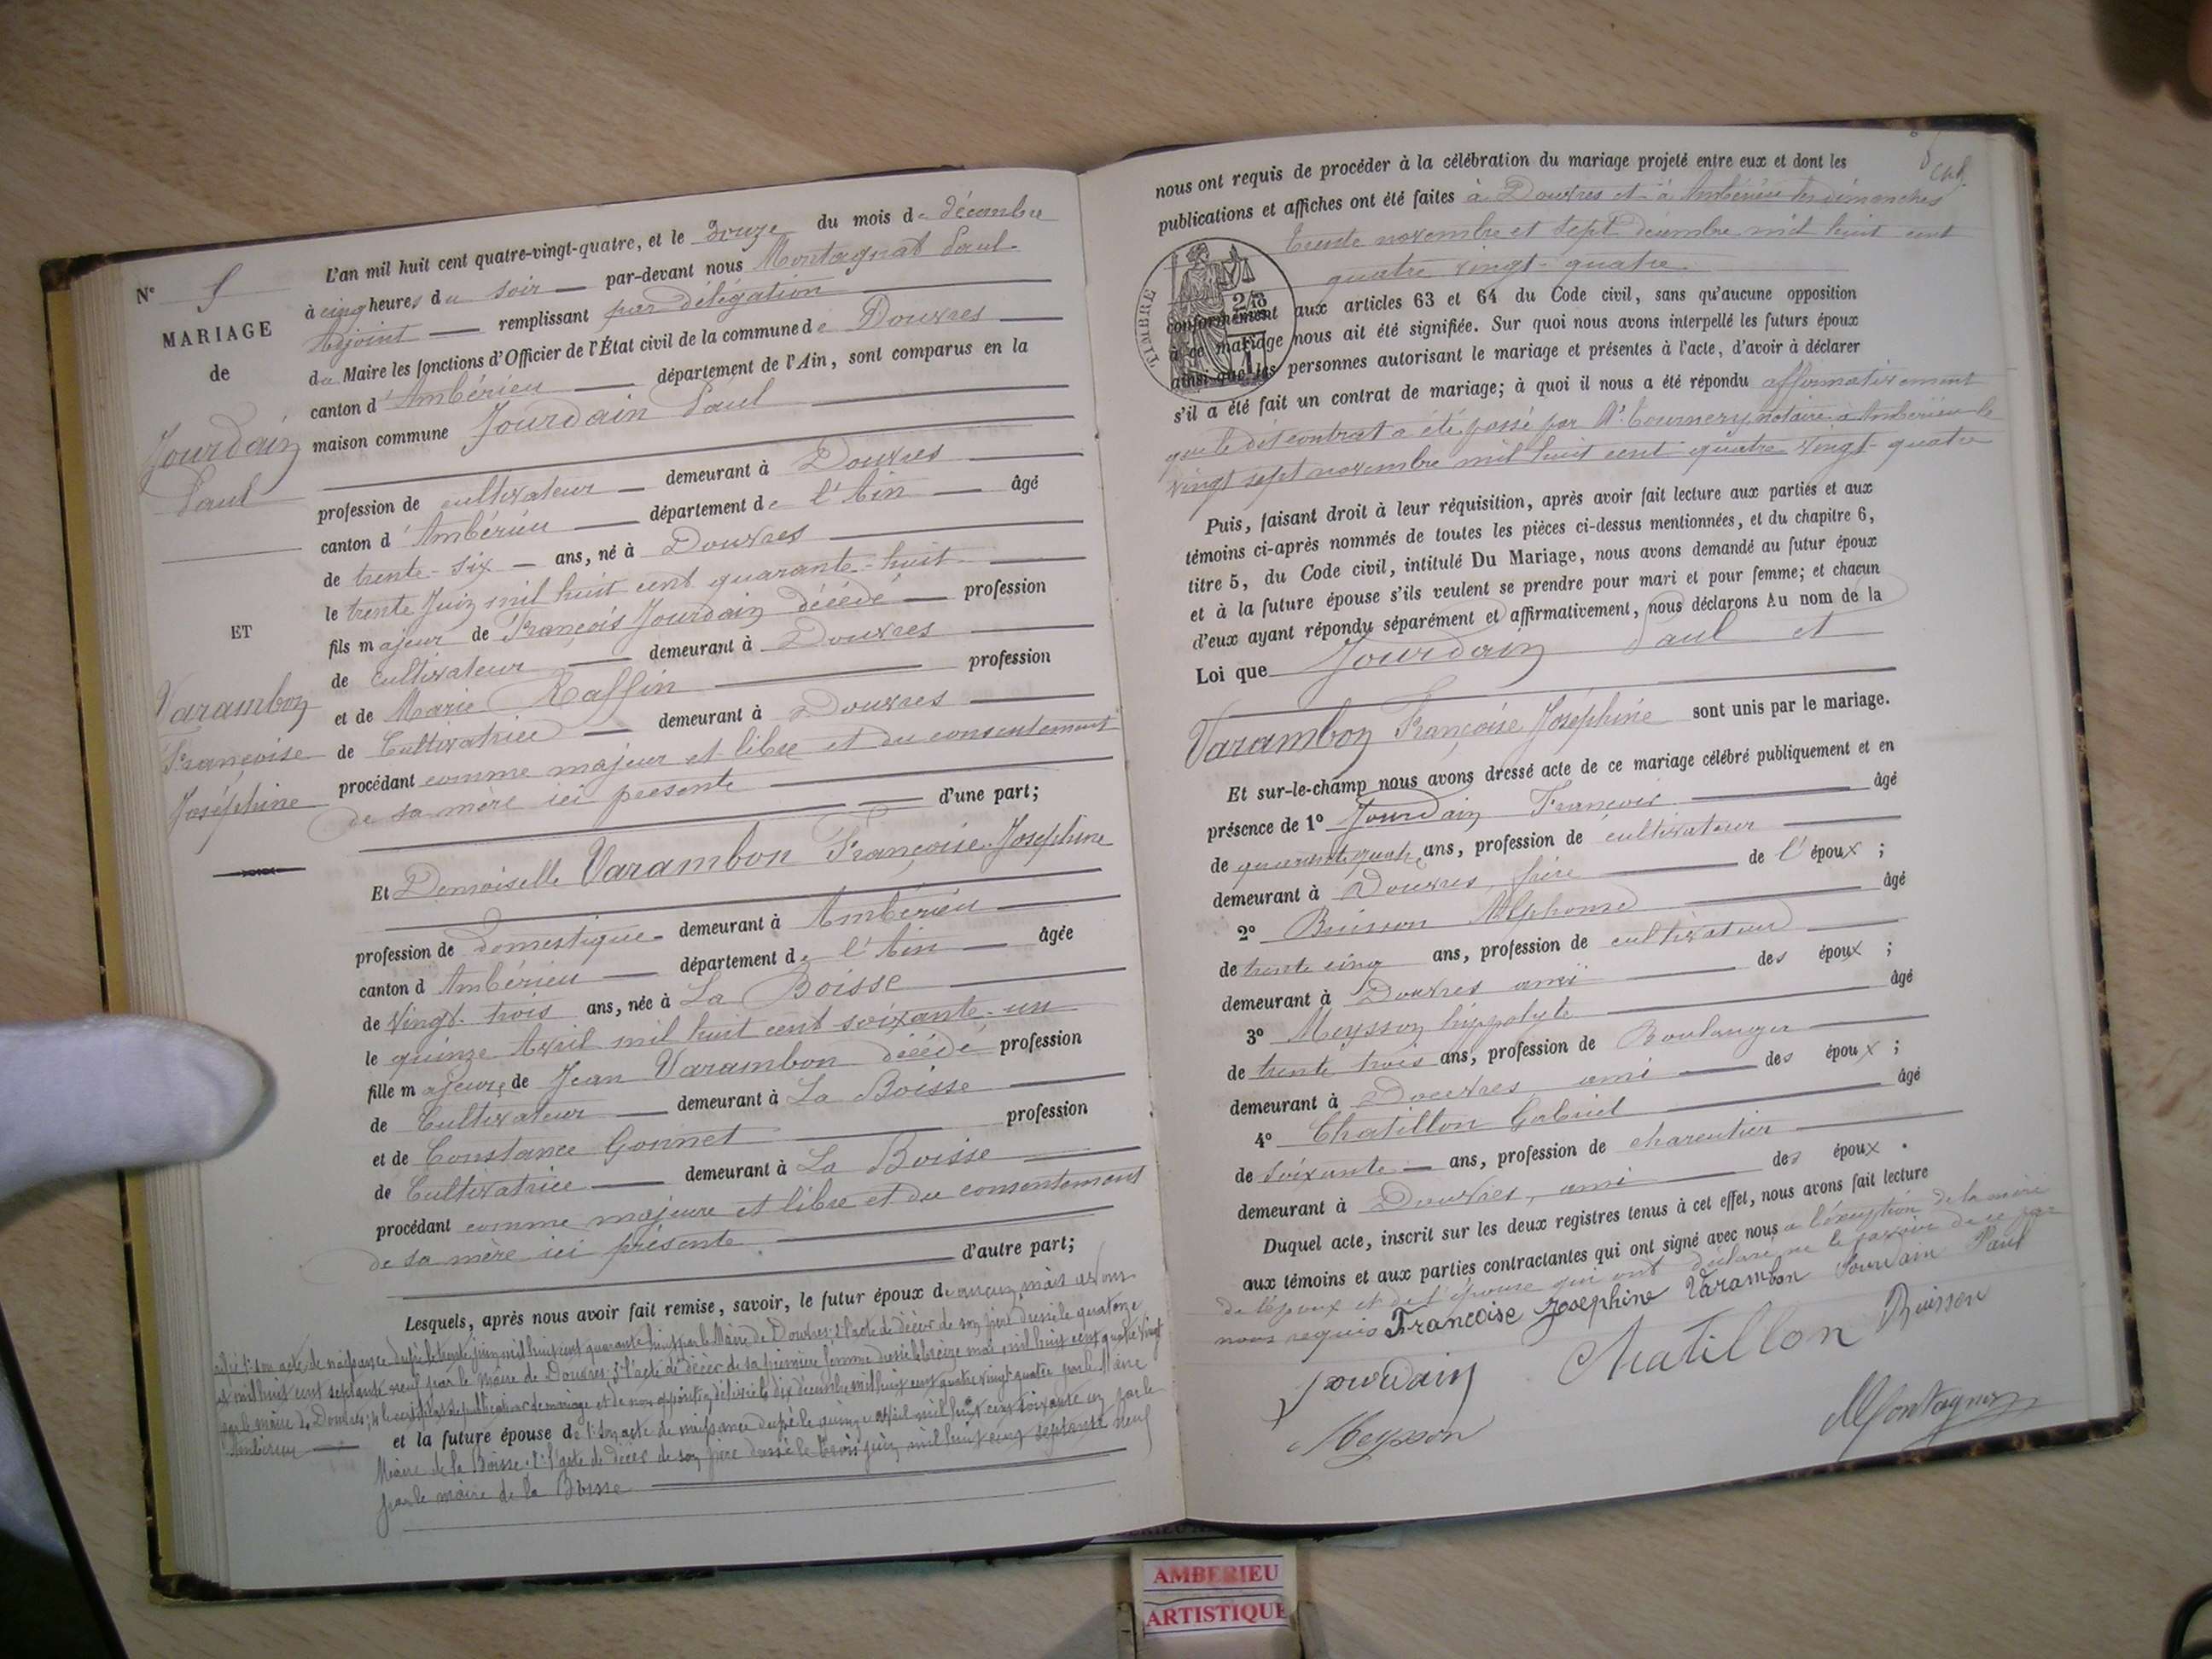 Nº 5
MARIAGE
de
Jourdain
Paul
ET
Varambon
Françoise
Joséphine
L'an mil huit cent quatre-vingt-quatre, et le douze du mois de décembre
à cinq heures du soir par-devant nous Montagnat Paul
Adjoint remplissant par délégation
du Maire les fonctions d'Officier de l'État civil de la commune de Douvres
canton d'Ambérieu département de l'Ain, sont comparus en la
maison commune Jourdain Paul
profession de cultivateur demeurant à Douvres
canton d'Ambérieu département de l'Ain âgé
de trente-six ans, né à Douvres
le trente Juin mil huit cent quarante-huit
fils majeur de François Jourdain décédé profession
de cultivateur demeurant à Douvres
et de Marie Raffin profession
de Cultivatrice demeurant à Douvres
procédant comme majeur et libre et du consentement
de sa mère ici présente d'une part;
Et Demoiselle Varambon Françoise Joséphine
profession de domestique demeurant à Ambérieu
canton d Ambérieu département de l'Ain âgée
de Vingt-trois ans, née à La Boisse
le quinze Avril mil huit cent soixante-un
fille majeure de Jean Varambon décédé profession
de Cultivateur demeurant à La Boisse
et de Constance Gonnet profession
de Cultivatrice demeurant à La Boisse
procédant comme majeure et libre et du consentement
de sa mère ici présente d'autre part;
Lesquels, après nous avoir fait remise, savoir, le futur époux de aucun, mais avons
1º son acte de naissance dressé le trente juin mil huit cent quarante huit par le Maire de Douvres; 2º l'acte de décès de son père dressé le quatorze
mil huit cent septante neuf par le Maire de Douvres; 3º l'acte de décès de sa première femme dressé le treize mai mil huit cent quatre vingt
par le maire de Douvres; 4º le certificat de publication de mariage et de non opposition délivré le dix décembre mil huit cent quatre vingt quatre par le Maire
Ambérieu et la future épouse de 1º son acte de naissance dressé le quinze avril mil huit cent soixante un par le
Maire de la Boisse; 2º l'acte de décès de son père dressé le trois juin mil huit cent septante neuf
par le maire de la Boisse
nous ont requis de procéder à la célébration du mariage projeté entre eux et dont les
publications et affiches ont été faites à Douvres et à Ambérieu les dimanches
trente novembre et sept décembre mil huit cent
quatre vingt-quatre
TIMBRE
conformément aux articles 63 et 64 du Code civil, sans qu'aucune opposition
à ce mariage nous ait été signifiée. Sur quoi nous avons interpellé les futurs époux
ainsi que les personnes autorisant le mariage et présentes à l'acte, d'avoir à déclarer
s'il a été fait un contrat de mariage; à quoi il nous a été répondu affirmativement
que le dit contrat a été passé par Mᵉ Tournery notaire à Ambérieu le
vingt sept novembre mil huit cent quatre vingt-quatre
Puis, faisant droit à leur réquisition, après avoir fait lecture aux parties et aux
témoins ci-après nommés de toutes les pièces ci-dessus mentionnées, et du chapitre 6,
titre 5, du Code civil, intitulé Du Mariage, nous avons demandé au futur époux
et à la future épouse s'ils veulent se prendre pour mari et pour femme; et chacun
d'eux ayant répondu séparément et affirmativement, nous déclarons Au nom de la
Loi que Jourdain Paul et
Varambon Françoise Joséphine sont unis par le mariage.
Et sur-le-champ nous avons dressé acte de ce mariage célébré publiquement et en
présence de 1º Jourdain François âgé
de quarante quatre ans, profession de cultivateur
demeurant à Douvres, frère de l'époux ;
2º Buisson Alphonse âgé
de trente cinq ans, profession de cultivateur
demeurant à Douvres ami des époux ;
3º Meysson hippolyte âgé
de trente trois ans, profession de Boulanger
demeurant à Douvres ami des époux ;
4º Chatillon Gabriel âgé
de soixante ans, profession de charentier
demeurant à Douvres, ami des époux .
Duquel acte, inscrit sur les deux registres tenus à cet effet, nous avons fait lecture
aux témoins et aux parties contractantes qui ont signé avec nous à l'exception de la mère
de l'époux et de l'épouse qui ont déclaré ne le savoir de ce par
nous requis Françoise Josephine Varambon Jourdain Paul
Jourdain Chatillon Buisson
Meysson Montagnat
AMBERIEU
ARTISTIQUE